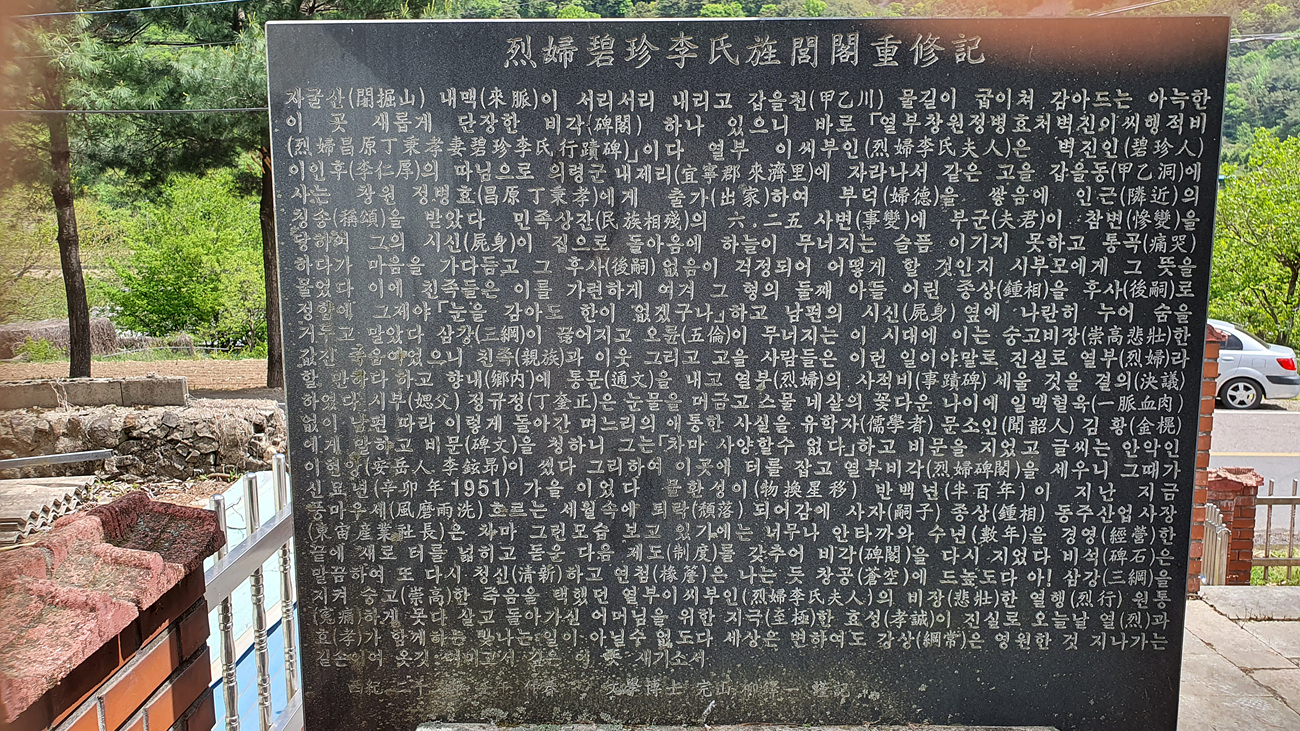 烈婦碧珍李氏旌閭閣重修記
자굴산(闍掘山) 내맥(來脈)이 서리서리 내리고 갑을천(甲乙川) 물길이 굽이쳐 감아드는 아늑한
이 곳 새롭게 단장한 비각(碑閣) 하나 있으니 바로 「열부창원정병효처벽진이씨행적비
(烈婦昌原丁秉孝妻碧珍李氏行蹟碑)」이다 열부 이씨부인(烈婦李氏夫人)은 벽진인(碧珍人)
이인후(李仁厚)의 따님으로 의령군 내제리(宜寧郡 來濟里)에 자라나서 같은 고을 갑을동(甲乙洞)에
사는 창원 정병효(昌原 丁秉孝)에게 출가(出家)하여 부덕(婦德)을 쌓음에 인근(隣近)의
칭송(稱頌)을 받았다 민족상잔(民族相殘)의 六.二五 사변(事變)에 부군(夫君)이 참변(慘變)을
당하여 그의 시신(屍身)이 집으로 돌아옴에 하늘이 무너지는 슬픔 이기지 못하고 통곡(痛哭)
하다가 마음을 가다듬고 그 후사(後嗣) 없음이 걱정되어 어떻게 할 것인지 시부모에게 그 뜻을
물었다 이에 친족들은 이를 가련하게 여겨 그 형의 둘째 아들 어린 종상(鍾相)을 후사(後嗣)로
정함에 그제야 「눈을 감아도 한이 없겠구나」하고 남편의 시신(屍身) 옆에 나란히 누어 숨을
거두고 말았다 삼강(三綱)이 끊어지고 오륜(五倫)이 무너지는 이 시대에 이는 숭고비장(崇高悲壯)한
값진 죽음이었으니 친족(親族)과 이웃 그리고 고을 사람들은 이런 일이야말로 진실로 열부(烈婦)라
할 만하다 하고 향내(鄉内)에 통문(通文)을 내고 열부(烈婦)의 사적비(事蹟碑) 세울 것을 결의(決議)
하였다 시부(媤父) 정규정(丁奎正)은 눈물을 머금고 스물 네살의 꽃다운 나이에 일맥혈육(一脈血肉)
없이 남편 따라 이렇게 돌아간 며느리의 애통한 사실을 유학자(儒學者) 문소인(聞韶人) 김 황(金榥)
에게 말하고 비문(碑文)을 청하니 그는 「차마 사양할수 없다」하고 비문을 지었고 글씨는 안악인
이현앙(安岳人 李鉉昻)이 썼다 그리하여 이곳에 터를 잡고 열부비각(烈婦碑閣)을 세우니 그때가
신묘년(辛卯年1951) 가을 이었다 물환성이(物換星移) 반백년(半百年)이 지난 지금
풍마우세(風磨雨洗) 흐르는 세월속에 퇴락(頹落) 되어감에 사자(嗣子) 종상(鍾相) 동주산업사장
(東宙産業社長)은 차마 그런모습 보고 있기에는 너무나 안타까와 수년(數年)을 경영(經營)한
끝에 새로 터를 넓히고 돌을 다음 제도(制度)를 갖추어 비각(碑閣)을 다시 지었다 비석(碑石)은
말끔하여 또 다시 청신(清新)하고 연첨(椽簷)은 나는 듯 창공(蒼空)에 드높도다 아! 삼강(三綱)을
지켜 숭고(崇高)한 죽음을 택했던 열부이씨부인(烈婦李氏夫人)의 비장(悲壯)한 열행(烈行) 원통
(寃痛)하게 못다 살고 돌아가신 어머님을 위한 지극(至極)한 효성(孝誠)이 진실로 오늘날 열(烈)과
효(孝)가 함께하는 빛나는 일이 아닐수 없도다 세상은 변하여도 강상(綱常)은 영원한 것 지나가는
길손이여 옷깃 여미고서 깊은 이 뜻 새기소서
西紀 二千 春 文學博士 元山 柳鐸 謹記